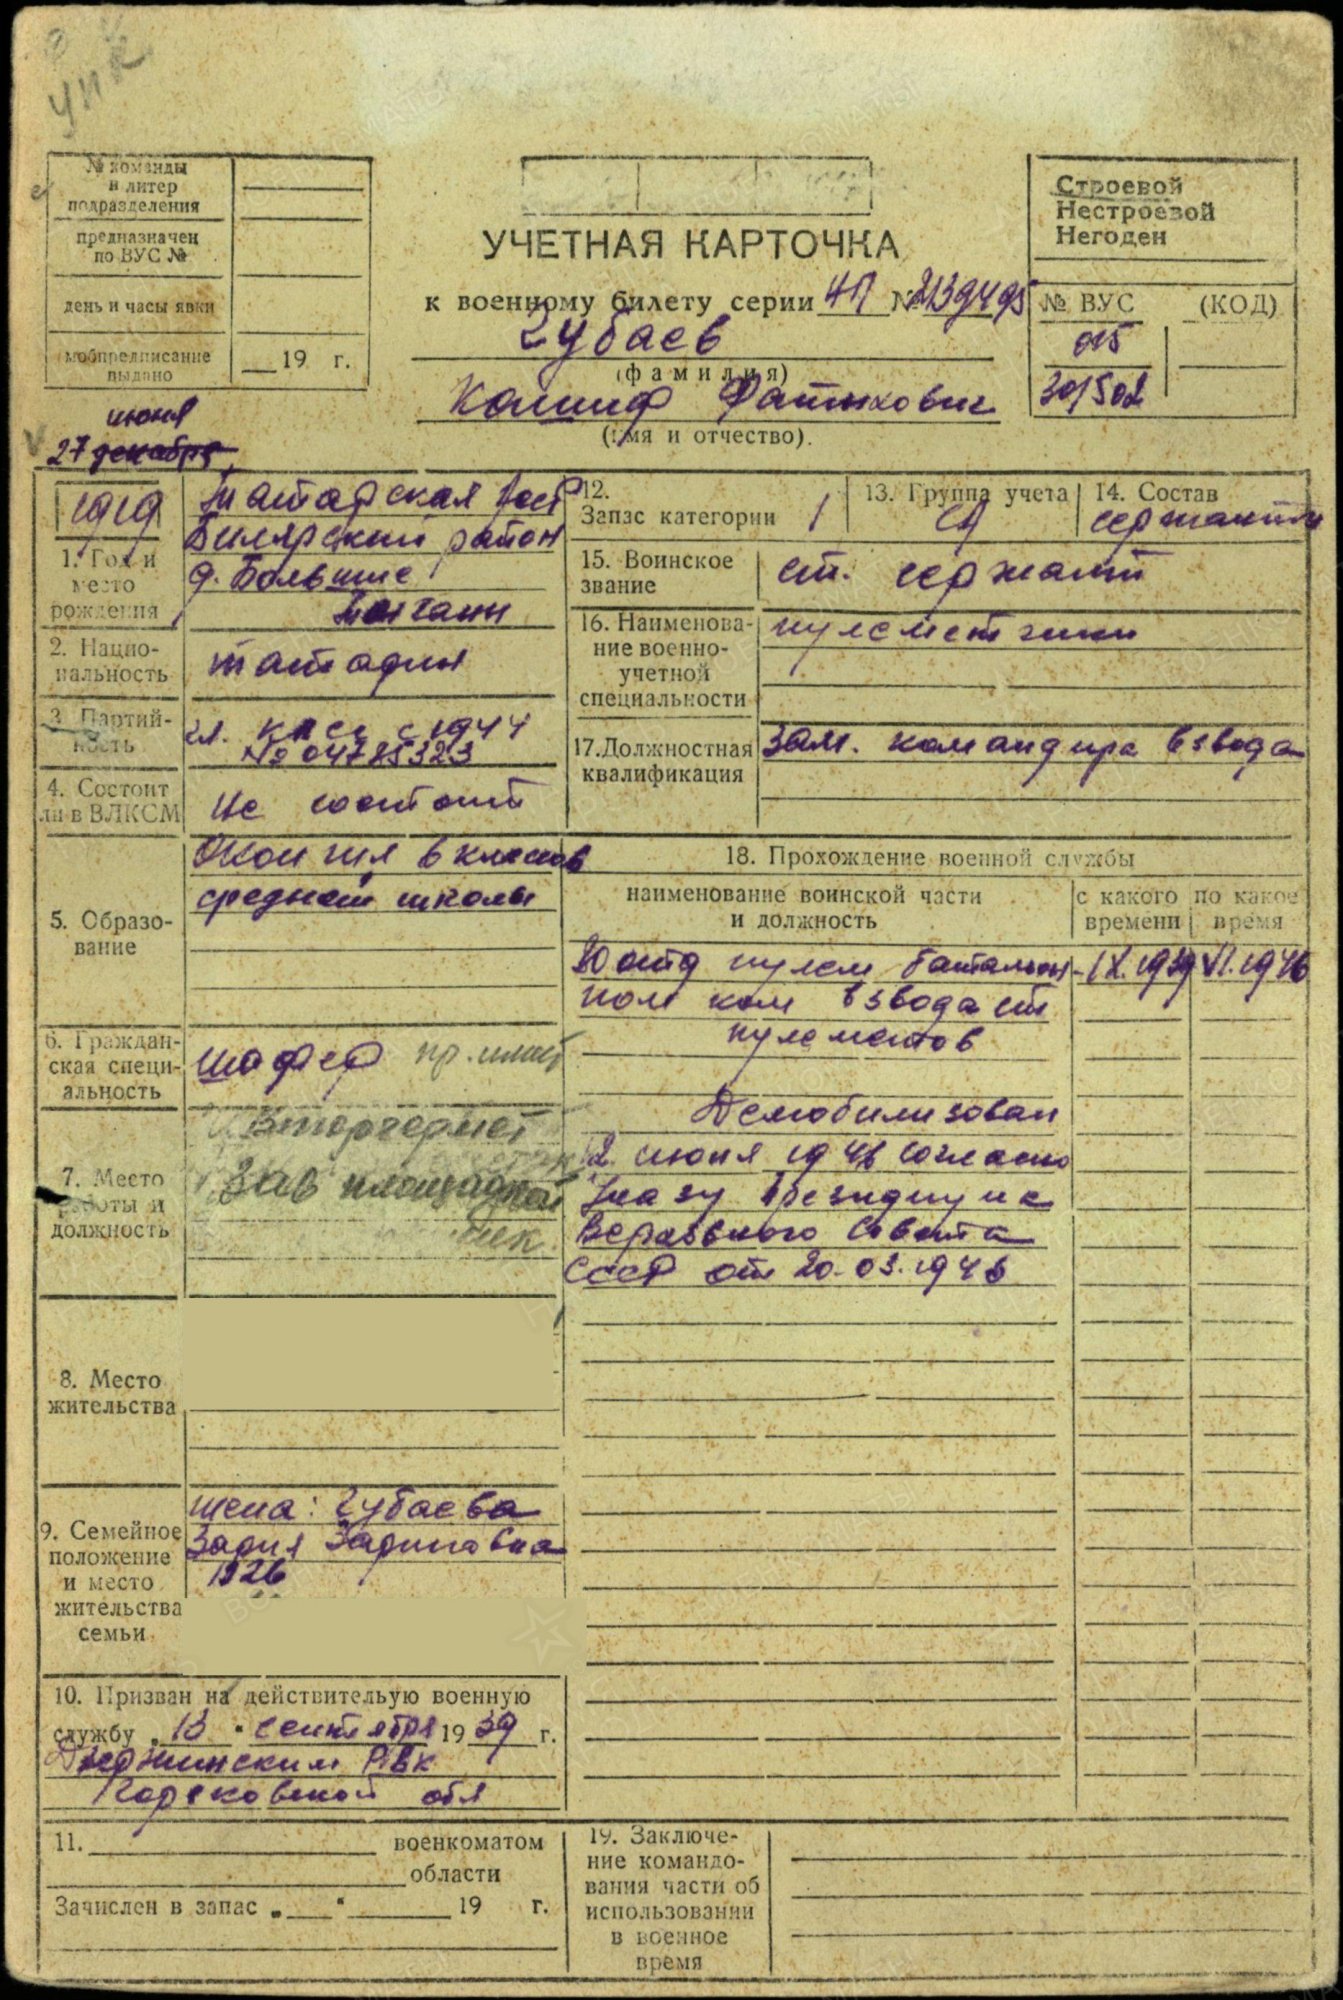 УПК
№ команды
и литер
подразделения
предназначен
по ВУС №
день и часы явки
мобпредписание
выдано
19 г.
УЧЕТНАЯ КАРТОЧКА
к военному билету серии НП № 2139495
Зубаев
(фамилия)
Кашиф Фатыхович
(имя и отчество).
Строевой
Нестроевой
Негоден
№ ВУС (КОД)
015
301502
июня
27 декабря
1919
1. Год и
место
рождения
Татарская АССР
Билярский район
д. Большие
2. Нацио-
нальность
татарин
3. Партий-
ность
чл. КПСС с 1944
№ 04785323
4. Состоит
ли в ВЛКСМ
Не состоит
5. Образо-
вание
Окончил 6 классов
средней школы
6. Граждан-
ская специ-
альность
шофер
7. Место
работы и
должность
Вторчермет
Зав площадкой
8. Место
жительства
9. Семейное
положение
и место
жительства
семьи
жена: Зубаева
1926
10. Призван на действительую военную
службу „13“ сентября 1939 г.
Дзержинским РВК
Горьковской обл
11. военкоматом
области
Зачислен в запас „ “ 19 г.
12.
Запас категории 1
13. Группа учета
СА
14. Состав
сержантск
15. Воинское
звание
ст. сержант
16. Наименова-
ние военно-
учетной
специальности
пулеметчики
17. Должностная
квалификация
зам. командира взвода
18. Прохождение военной службы
наименование воинской части
и должность
с какого
времени
по какое
время
30 отд пулем батальон - IX.1939 VI.1946
пом ком взвода ст
пулеметов
Демобилизован
12 июня 1946 согласно
Указу Президиума
Верховного Совета
СССР от 20.03.1946
19. Заключе-
ние командо-
вания части об
использовании
в военное
время